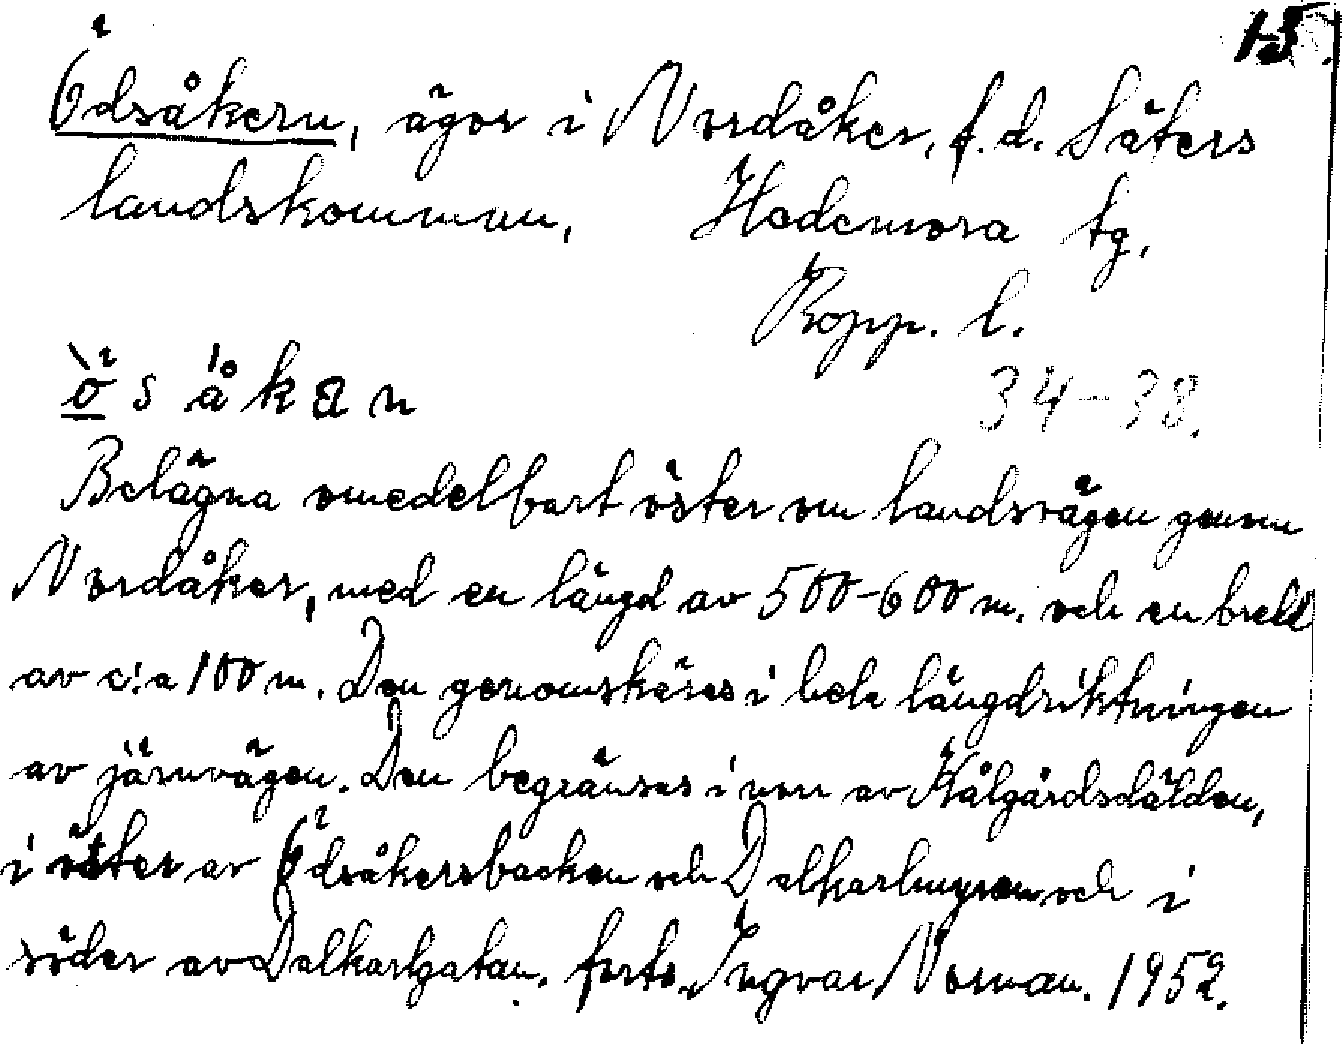 15.
Ödsåkern, ägor i Nordåker, f.d. Säters
landskommun, Hedemora tg.
Kopp. l.
34-38.
ö̀ s å k a n
Belägna omedelbart öster om landsvägen genom
Nordåker, med en längd av 500-600 m. och en bredd
av c:a 100 m. Den genomskäres i hela längdriktningen
av järnvägen. Den begränsas i norr av Kålgårdsdälden,
i öster av Ödsåkersbacken och Dalkarlmyren och i
söder av Dalkarlgatan. forts. Ingvar Norman. 1952.